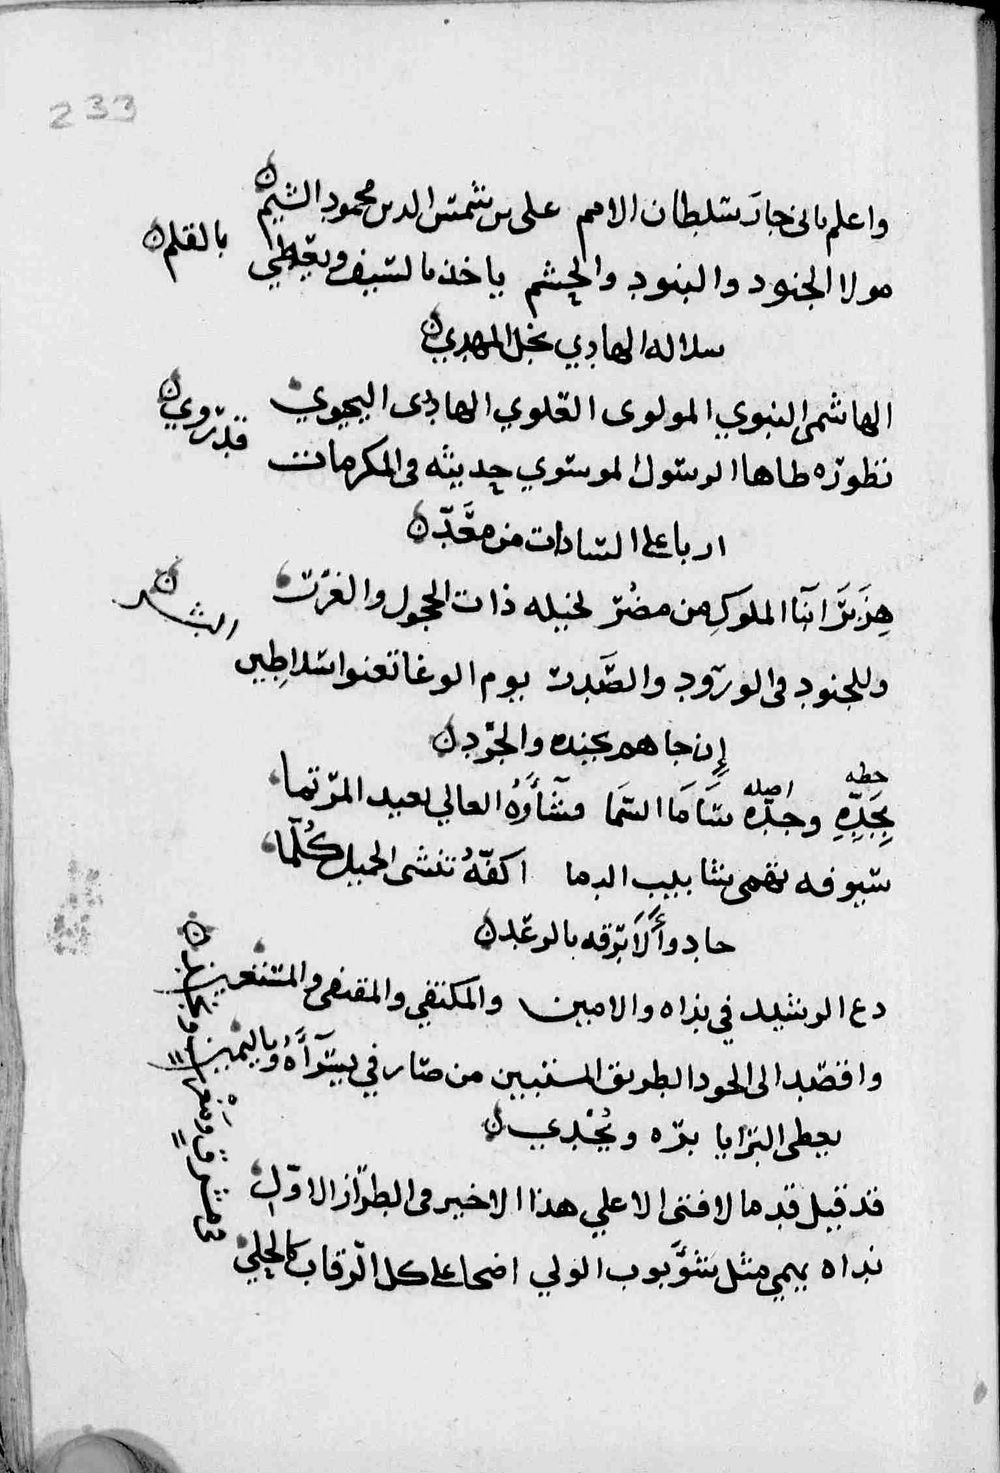 233
واعلم باني جار سلطان الامم علي بن شمس الدين محمود الشيم
مولا الجنود والبنود والحشم ياخذ بالسيف ويعطي بالقلم
سلاله الهادي نجل المهدي
الهاشمي النبوي المولوي العلوي الهادي اليحيوي
نظوره طاها الرسول الموسوي حديثه في المكرمات قد روي
اربا على السادات من معد
هزبر ابنا الملوك من مضر لخيله ذات الحجول والغرر
وللجنود في الورود والصدر يوم الوغا تعنوا سلاطين البشر
إن جاهم بجنده والجرد
حظه اصله
بجده وجده ساما السما فشأوه العالي بعيد المرتما
سيوفه تهمي شئابيب الدما اكفه تنشي الجميل كلما
جاد وألا برقه بالرعد
دع الرشيد في نداه والامين والمكتفي والمقتفي والمستعين
واقصد الى الجود الطريق المستبين من صار في يسرآه وباليمين
يعطي البرايا بره ويجدي
قد قيل قدما لا فتى الا علي هذا الاخير في الطراز الاول
نداه يهمي مثل شؤبوب الولي اضحا على كل الرقاب كالحلي